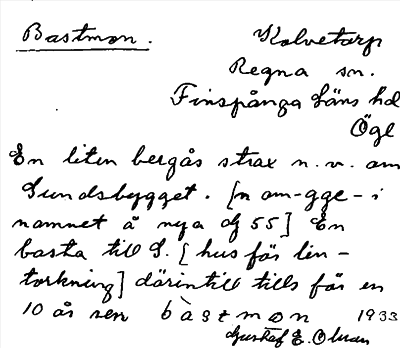 Bastmon. Kolvetorp
Regna sn.
Finspånga läns hd
Ögl
En liten bergås strax n. v. om
Sundsbygget. [n om -gge- i
namnet å nya dg 55] En
basta till S. [hus för lin-
torkning] därintill tills för en
10 år sen bàstmon 1933
Gustaf E. Olsson